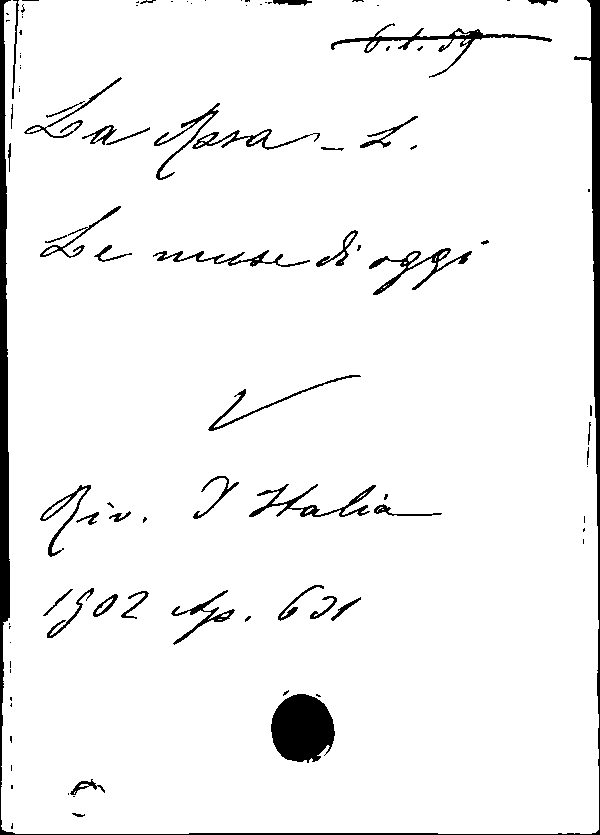 6.1.59
La Rosa - L.
Le muse di oggi
Riv. d'Italia
1902 Ap. 631